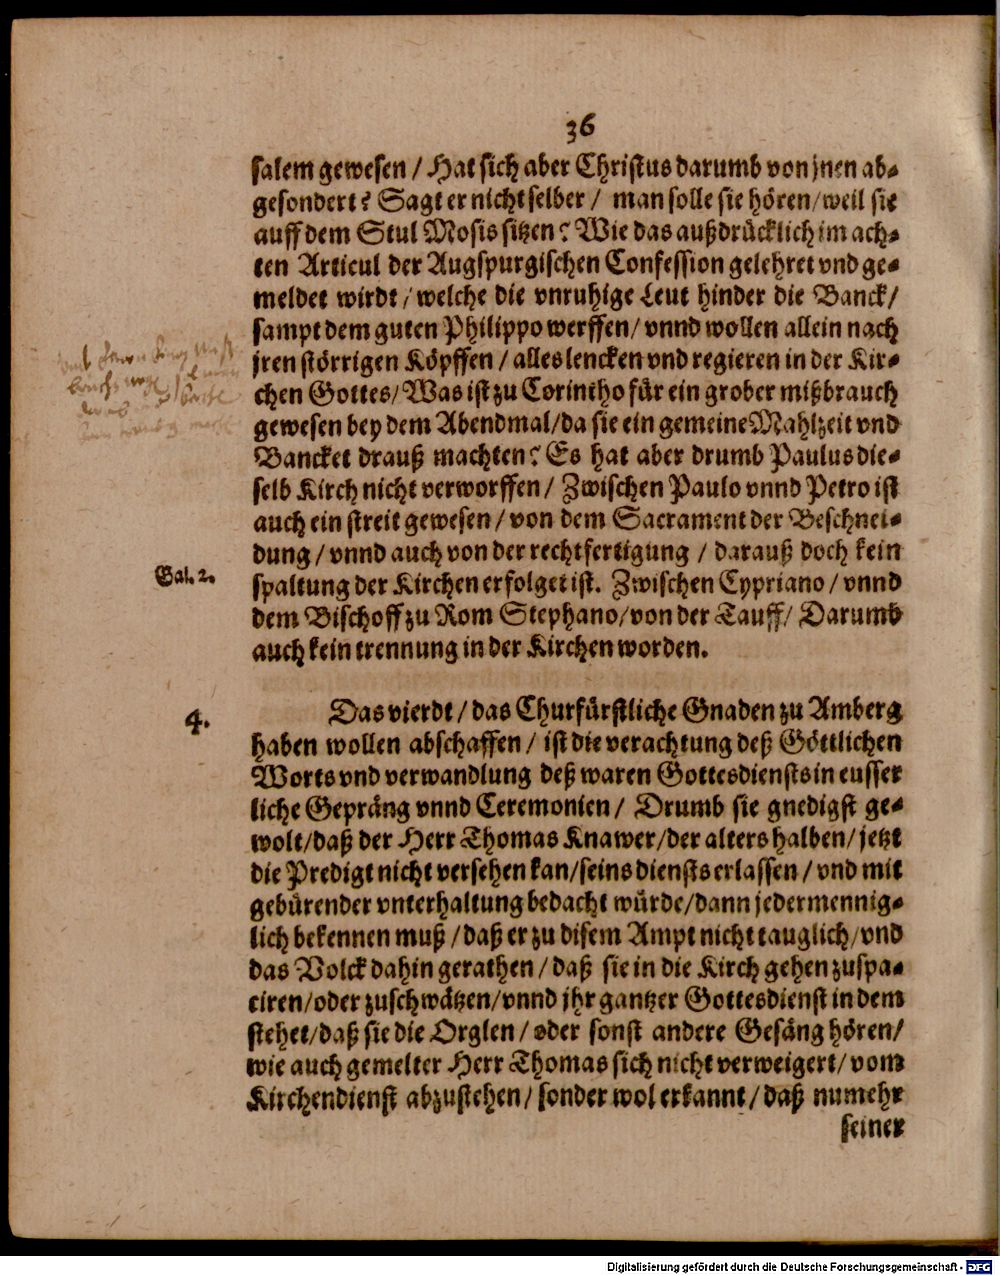 36
salem gewesen / Hat sich aber Christus darumb von jnen ab-
gesondert? Sagt er nicht selber / man solle sie hören / weil sie
auff dem Stul Mosis sitzen? Wie das außdrücklich im ach-
ten Articul der Augspurgischen Confession gelehret vnd ge-
meldet wirdt / welche die vnruhige Leut hinder die Banck /
sampt dem guten Philippo werffen / vnnd wollen allein nach
jren störrigen Köpffen / alles lencken vnd regieren in der Kir-
chen Gottes / Was ist zu Corintho für ein grober mißbrauch
gewesen bey dem Abendmal / da sie ein gemeine Mahlzeit vnd
Bancket drauß machten? Es hat aber drumb Paulus die-
selb Kirch nicht verworffen / Zwischen Paulo vnnd Petro ist
auch ein streit gewesen / von dem Sacrament der Beschnei-
dung / vnnd auch von der rechtfertigung / darauß doch kein
Gal. 2.
spaltung der Kirchen erfolget ist. Zwischen Cypriano / vnnd
dem Bischoff zu Rom Stephano / von der Tauff / Darumb
auch kein trennung in der Kirchen worden.
4.
Das vierdt / das Churfürstliche Gnaden zu Amberg
haben wollen abschaffen / ist die verachtung deß Göttlichen
Worts vnd verwandlung deß waren Gottesdiensts in eusser
liche Gepräng vnnd Ceremonien / Drumb sie gnedigst ge-
wolt / daß der Herr Thomas Knawer / der alters halben / jetzt
die Predigt nicht versehen kan / seins diensts erlassen / vnd mit
gebürender vnterhaltung bedacht würde / dann jedermennig-
lich bekennen muß / daß er zu disem Ampt nicht tauglich / vnd
das Volck dahin gerathen / daß sie in die Kirch gehen zuspa-
ciren / oder zuschwätzen / vnnd jhr gantzer Gottesdienst in dem
stehet / daß sie die Orglen / oder sonst andere Gesäng hören /
wie auch gemelter Herr Thomas sich nicht verweigert / vom
Kirchendienst abzustehen / sonder wol erkannt / daß numehr
seiner
Digitalisierung gefördert durch die Deutsche Forschungsgemeinschaft - DFG